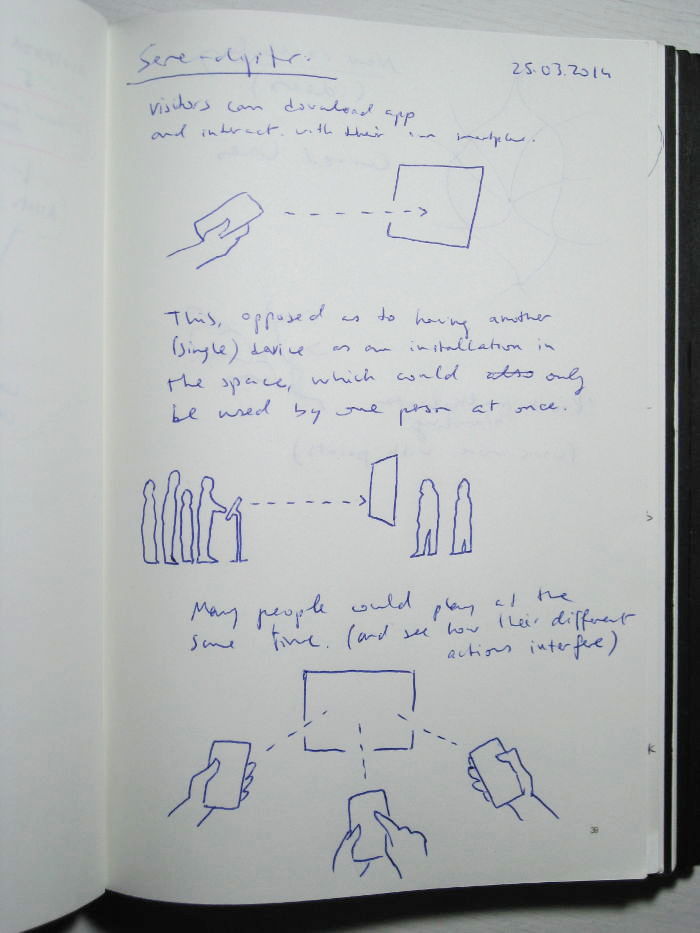 Serendipitor.
25.03.2014
visitors can download app
and interact. with their own smartphone.
This, opposed as to having another
(single) device as an installation in
the space, which could also only
be used by one person at once.
Many people could play at the
same time. (and see how their different
actions interfere)
38